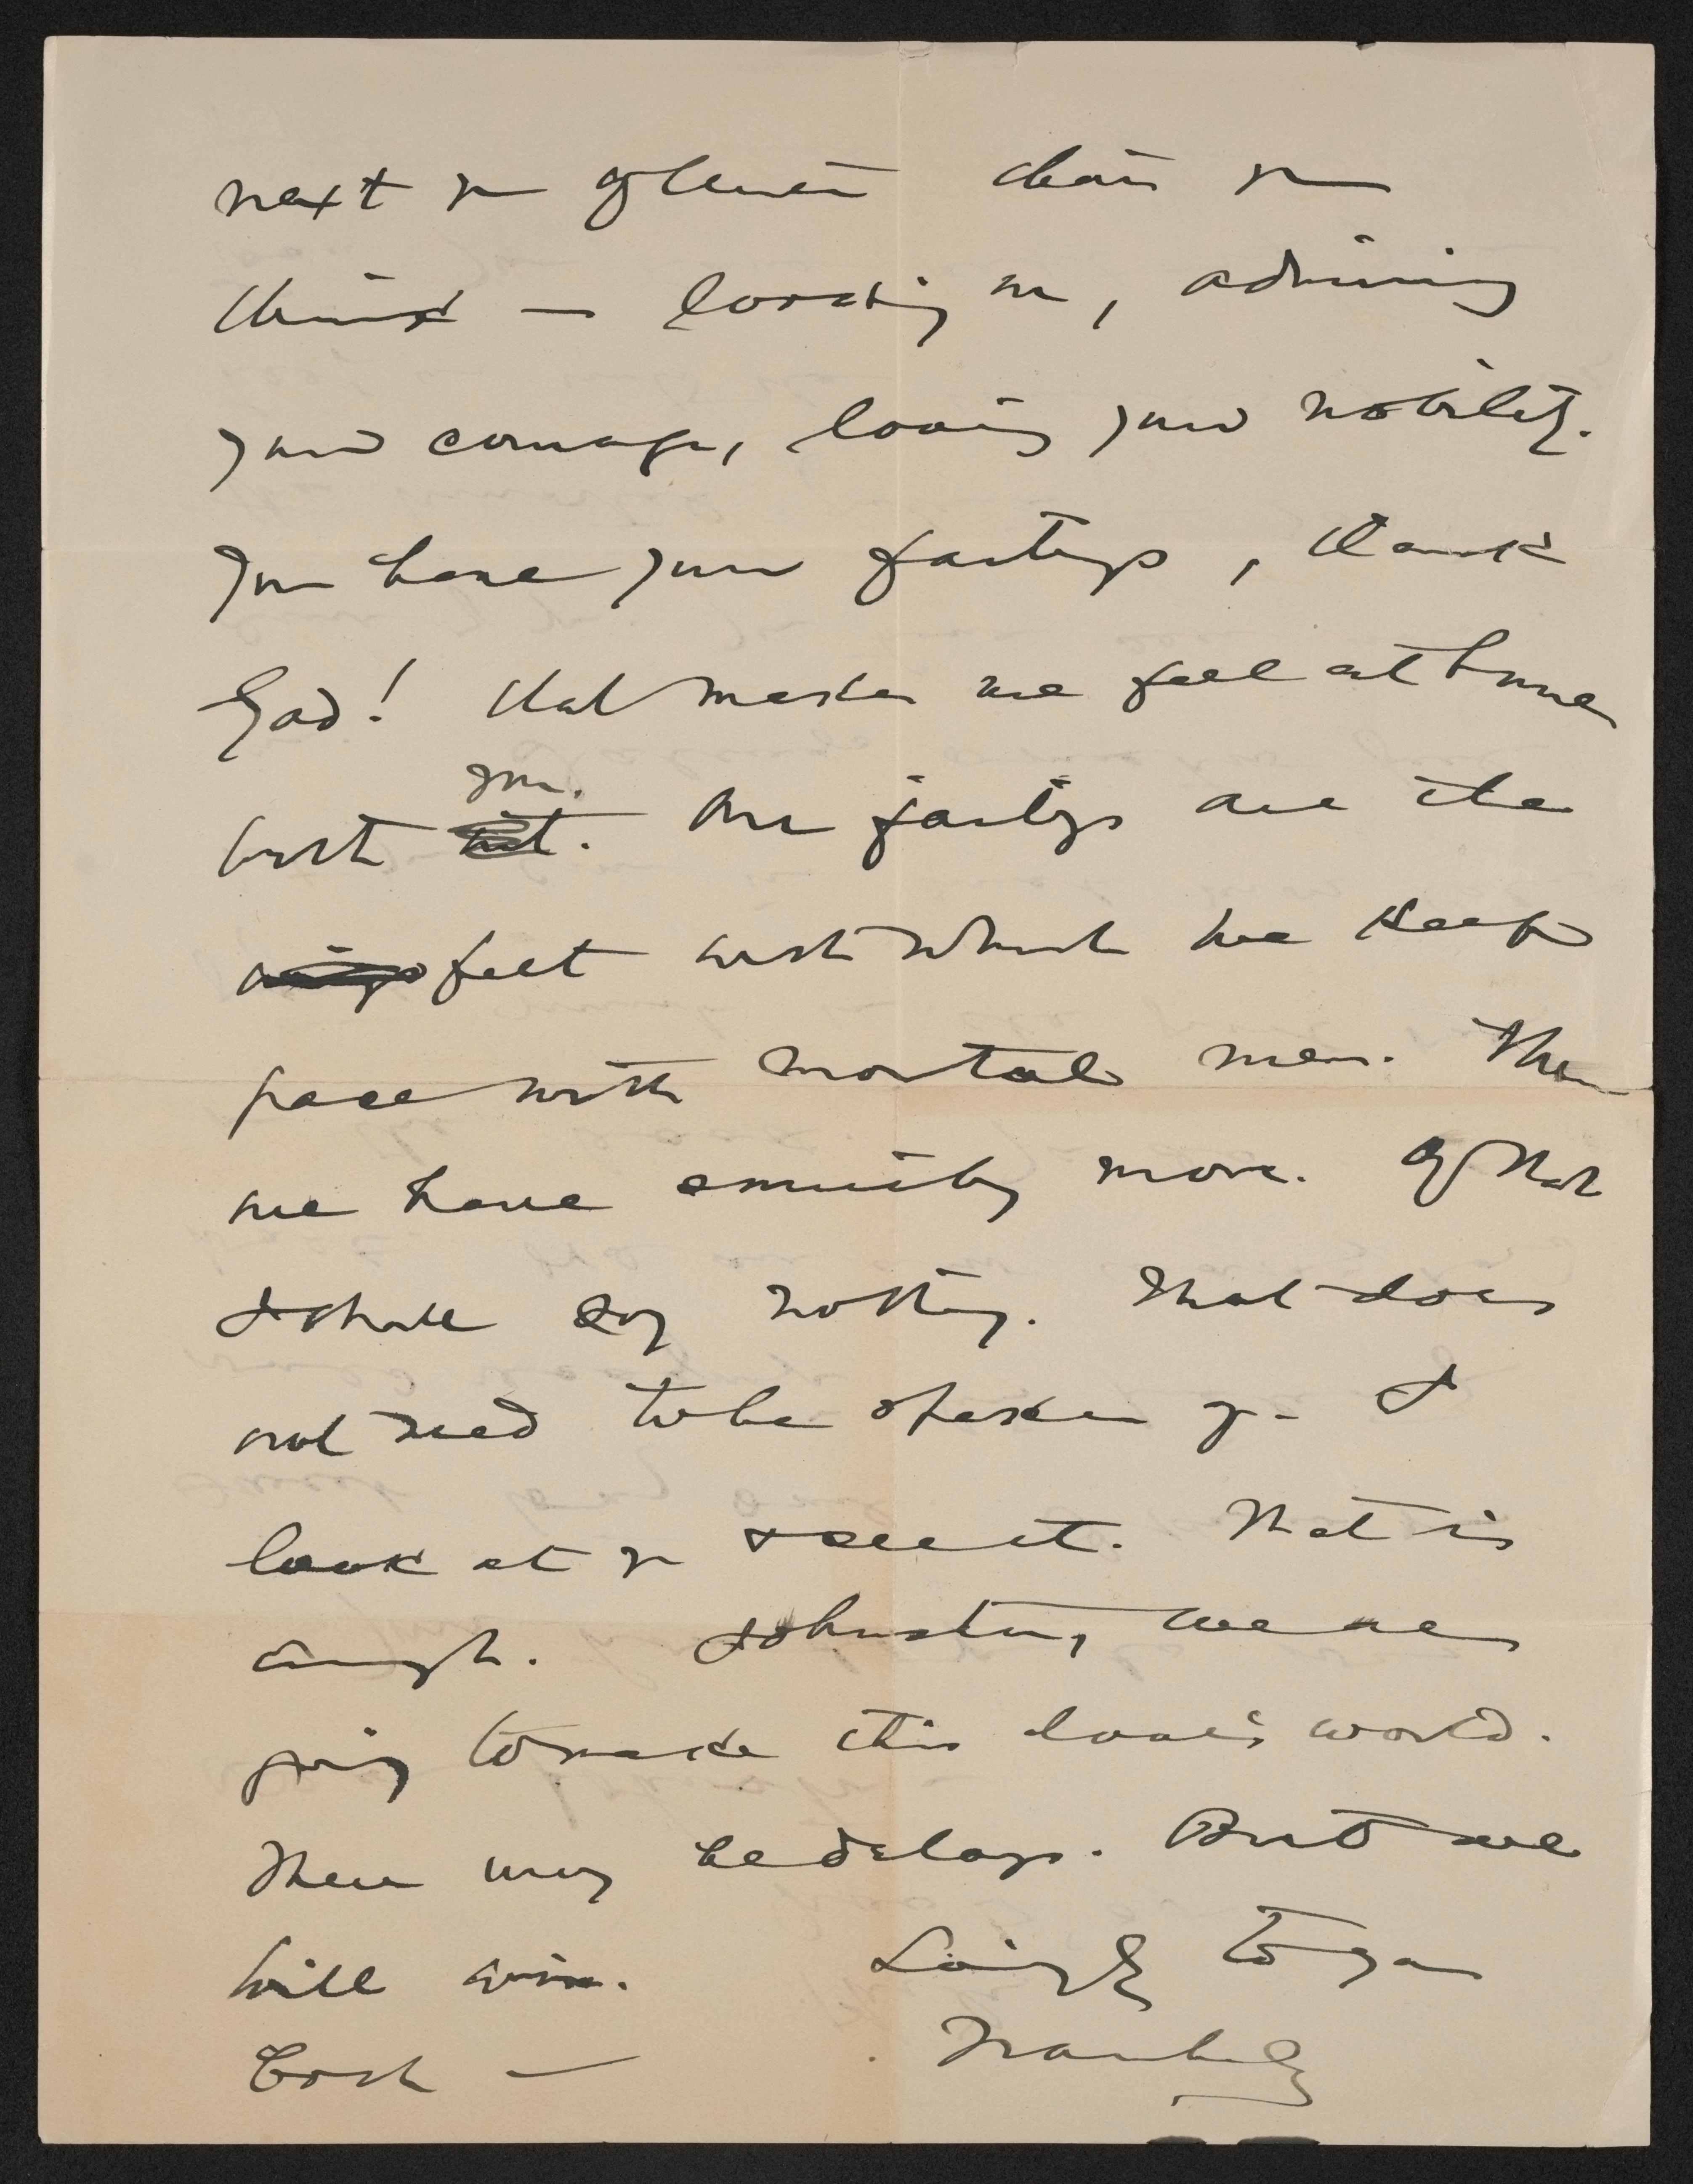 next you oftener than you
think — looking on, admiring
your courage, loving your nobility.
You have your failings, thank
God! that makes me feel at home
with you. Our failings are the
feet with which we keep
pace with mortal men. Then
we have something more. Of that
I shall say nothing. That does
not need to be spoken of. I
look at you & see it. That is
enough. Johnston, we are
going to make this love's world.
There may be delays. But we
will win. Lovingly to you
Both —